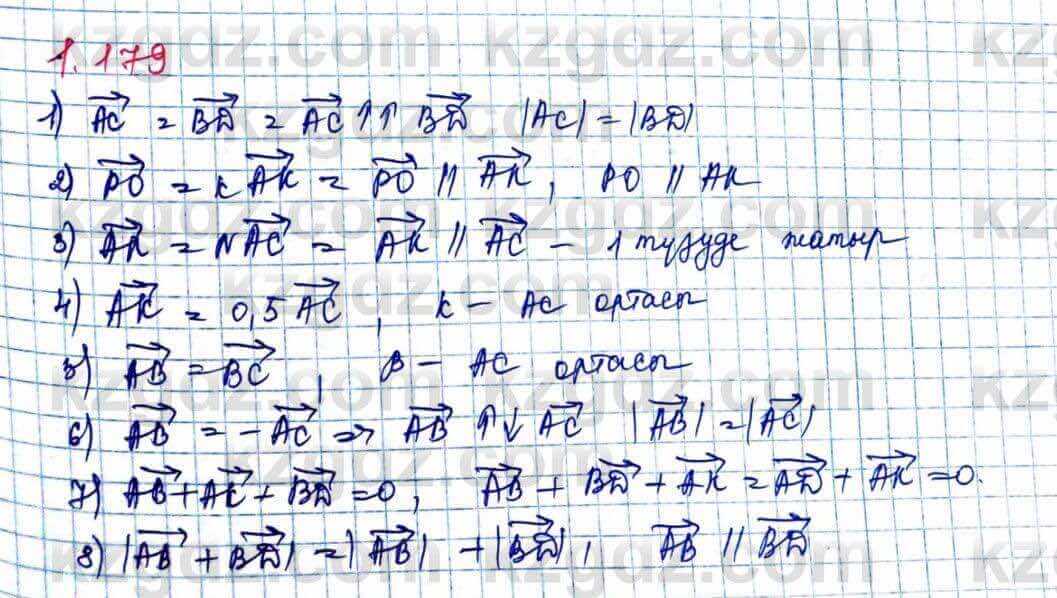 1.179
1) AC⃗ = BD⃗ = AC⃗ ↑↑ BD⃗ |AC| = |BD|
2) PO⃗ = k AK⃗ = PO⃗ // AK⃗, PO // AK
3) AK⃗ = N AC⃗ = AK⃗ // AC⃗ – 1 түзуде жатыр
4) AK⃗ = 0,5 AC⃗, K – AC ортасы
5) AB⃗ = BC⃗, B – AC ортасы
6) AB⃗ = – AC⃗ => AB⃗ ↑↓ AC⃗ |AB⃗| = |AC⃗|
7) AB⃗ + AC⃗ + BD⃗ = 0; AB⃗ + BD⃗ + AK⃗ = AD⃗ + AK⃗ = 0.
8) |AB⃗ + BD⃗| = |AB⃗| + |BD⃗|, AB⃗ // BD⃗
kzgdz.com